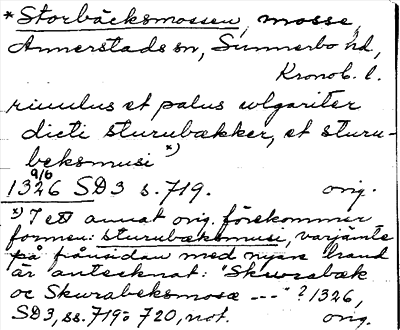 *Storbäcksmossen, mosse,
Annerstads sn, Sunnerbo hd,
Kronob. l.
riuulus et palus wlgariter
dicti sturubækker, et sturu-
beksmusi *)
9/6
1326 SD3 s. 719. orig.
*) I ett annat orig. förekommer
formen: sturubæksmusi, varjämte
på frånsidan med nyare hand
är antecknat: "Skurabæk
oc Skurabeksmosæ ---"? 1326,
SD3, ss. 719-720, not. orig.